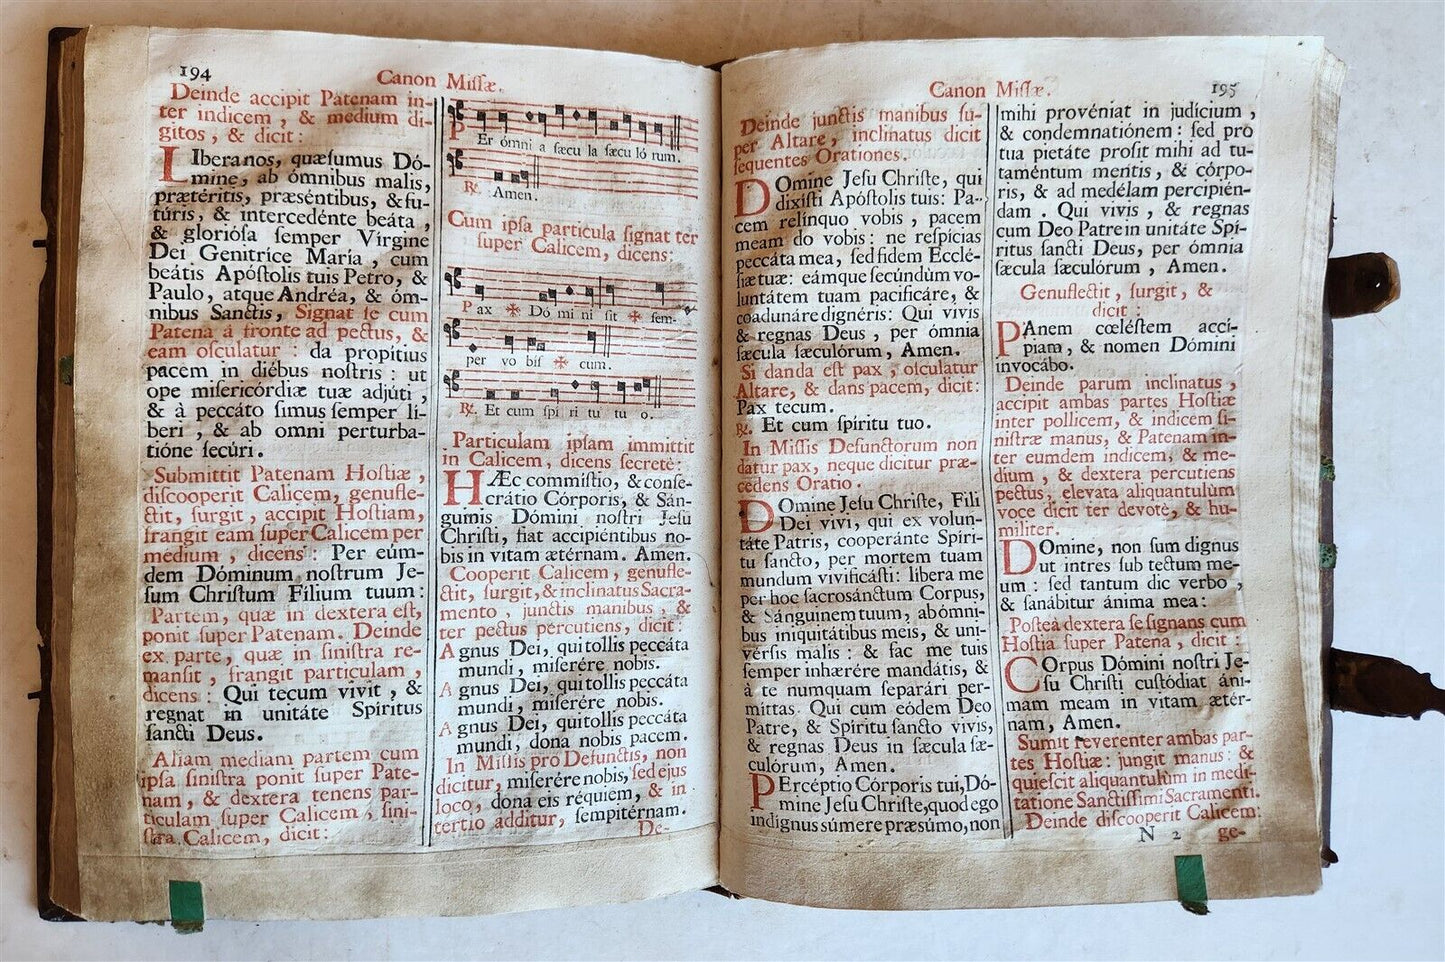 194
Canon Miſſæ.
Deinde accipit Patenam in-
ter indicem, & medium di-
gitos, & dicit:
LIbera nos, quæſumus Dó-
mine, ab ómnibus malis,
prætéritis, præséntibus, & fu-
túris, & intercedénte beáta,
& glorióſa ſemper Vírgine
Dei Genitríce María, cum
beátis Apóſtolis tuis Petro, &
Paulo, atque Andréa, & óm-
nibus Sanctis, Signat ſe cum
Patena à fronte ad pectus, &
eam oſculatur: da propitius
pacem in diébus noſtris: ut
ope miſericórdiæ tuæ adjúti,
& à peccáto ſimus ſemper lí-
beri, & ab omni perturba-
tióne ſecúri.
Submittit Patenam Hoſtiæ,
diſcooperit Calicem, genufle-
ctit, ſurgit, accipit Hoſtiam,
frangit eam ſuper Calicem per
medium, dicens: Per eúm-
dem Dóminum noſtrum Je-
ſum Chriſtum Fílium tuum:
Partem, quæ in dextera eſt,
ponit ſuper Patenam. Deinde
ex parte, quæ in ſiniſtra re-
manſit, frangit particulam,
dicens: Qui tecum vivit, &
regnat in unitáte Spíritus
ſancti Deus.
Aliam mediam partem cum
ipſa ſiniſtra ponit ſuper Pate-
nam, & dextera tenens par-
ticulam ſuper Calicem, ſini-
ſtra Calicem, dicit:
PEr ómni a ſæcu la ſæcu ló rum.
℟. Amen.
Cum ipſa particula ſignat ter
ſuper Calicem, dicens:
Pax ✠ Dó mi ni ſit ✠ ſem-
per vo biſ ✠ cum.
℟. Et cum ſpí ri tu tu o.
Particulam ipſam immittit
in Calicem, dicens ſecretè:
HÆc commíſtio, & conſe-
crátio Córporis, & Sán-
guinis Dómini noſtri Jeſu
Chriſti, fiat accipiéntibus no-
bis in vitam ætérnam. Amen.
Cooperit Calicem, genufle-
ctit, ſurgit, & inclinatus Sacra-
mento, junctis manibus, &
ter pectus percutiens, dicit:
Agnus Dei, qui tollis peccáta
mundi, miſerére nobis.
Agnus Dei, qui tollis peccáta
mundi, miſerére nobis.
Agnus Dei, qui tollis peccáta
mundi, dona nobis pacem.
In Miſſis pro Defunctis, non
dicitur, miſerére nobis, ſed ejus
loco, dona eis réquiem, & in
tertio additur, ſempitérnam.
De-
Canon Miſſæ.
195
Deinde junctis manibus ſu-
per Altare, inclinatus dicit
ſequentes Orationes.
DOmine Jeſu Chriſte, qui
dixíſti Apóſtolis tuis: Pa-
cem relínquo vobis, pacem
meam do vobis: ne reſpícias
peccáta mea, ſed fidem Ecclé-
ſiæ tuæ: eámque ſecúndùm vo-
luntátem tuam pacificáre, &
coadunáre dignéris: Qui vivis
& regnas Deus, per ómnia
ſæcula ſæculórum, Amen.
Si danda eſt pax, oſculatur
Altare, & dans pacem, dicit:
Pax tecum.
℟. Et cum ſpíritu tuo.
In Miſſis Defunctorum non
datur pax, neque dicitur præ-
cedens Oratio.
DOmine Jeſu Chriſte, Fili
Dei vivi, qui ex volun-
táte Patris, cooperánte Spíri-
tu ſancto, per mortem tuam
mundum vivificáſti: libera me
per hoc ſacroſánctum Corpus,
& Sánguinem tuum, ab ómni-
bus iniquitátibus meis, & uni-
vérſis malis: & fac me tuis
ſemper inhærére mandátis, &
à te numquam ſeparári per-
míttas. Qui cum eódem Deo
Patre, & Spíritu ſancto vivis,
& regnas Deus in ſæcula ſæ-
culórum, Amen.
PErcéptio Córporis tui, Dó-
mine Jeſu Chriſte, quod ego
indignus súmere præsúmo, non
mihi provéniat in judícium,
& condemnatiónem: ſed pro
tua pietáte proſit mihi ad tu-
taméntum mentis, & córpo-
ris, & ad medélam percipién-
dam. Qui vivis, & regnas
cum Deo Patre in unitáte Spí-
ritus ſancti Deus, per ómnia
ſæcula ſæculórum, Amen.
Genuflectit, ſurgit, &
dicit:
PAnem cœléſtem accí-
piam, & nomen Dómini
invocábo.
Deinde parum inclinatus,
accipit ambas partes Hoſtiæ
inter pollicem, & indicem ſi-
niſtræ manus, & Patenam in-
ter eumdem indicem, & me-
dium, & dextera percutiens
pectus, elevata aliquantulùm
voce dicit ter devotè, & hu-
militer.
DOmine, non ſum dignus
ut intres ſub tectum me-
um: ſed tantum dic verbo,
& ſanábitur ánima mea:
Poſtea dextera ſe ſignans cum
Hoſtia ſuper Patena, dicit:
COrpus Dómini noſtri Je-
ſu Chriſti cuſtódiat áni-
mam meam in vitam ætér-
nam, Amen.
Sumit reverenter ambas par-
tes Hoſtiæ: jungit manus: &
quieſcit aliquantulùm in medi-
tatione Sanctiſſimi Sacramenti.
Deinde diſcooperit Calicem:
N 2
ge-